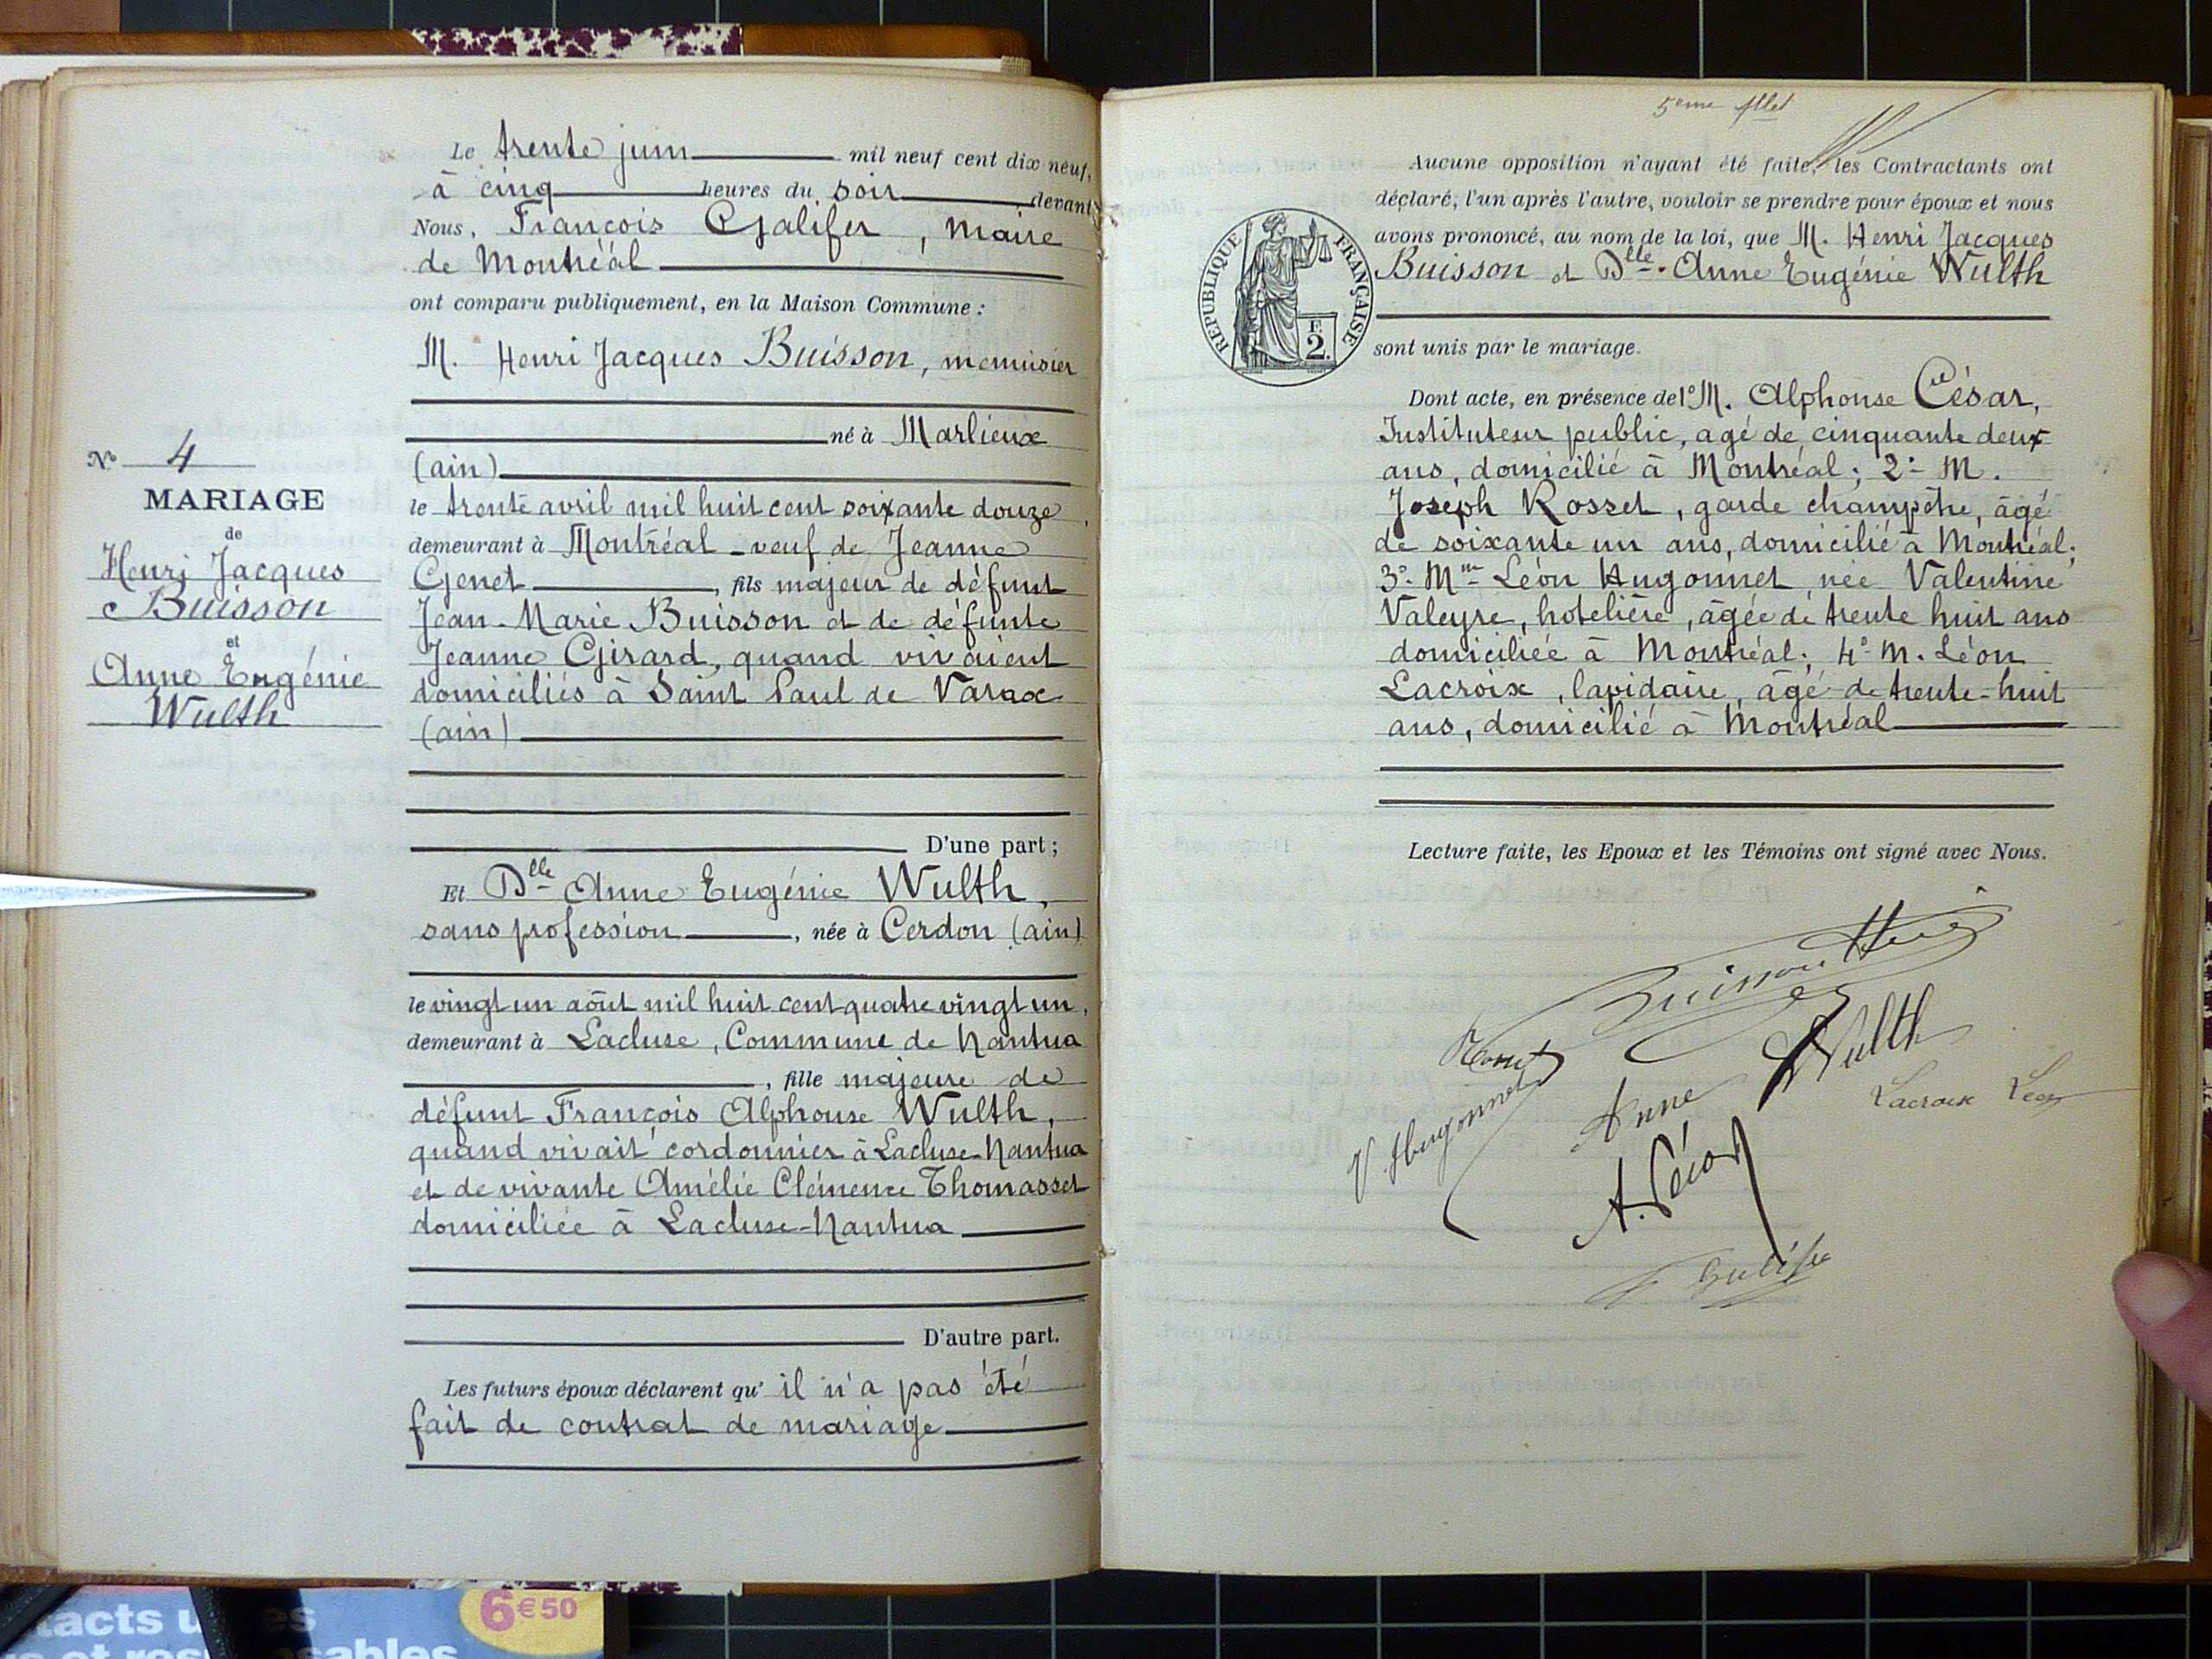 Le trente juin mil neuf cent dix-neuf,
à cinq heures du soir, devant
Nous, François Galifer, maire
de Montréal
ont comparu publiquement, en la Maison Commune :
M. Henri Jacques Buisson, menuisier
né à Marlieux
(ain)
le trente avril mil huit cent soixante douze,
demeurant à Montréal - veuf de Jeanne
Genet, fils majeur de défunt
Jean-Marie Buisson et de défunte
Jeanne Girard, quand vivaient
domiciliés à Saint Paul de Varax
(ain)
D'une part ;
Et Dlle Anne Eugénie Wulth,
sans profession, née à Cerdon (ain)
le vingt un août mil huit cent quatre vingt un,
demeurant à Lacluse, Commune de Nantua
, fille majeure de
défunt François Alphonse Wulth,
quand vivait cordonnier à Lacluse-Nantua
et de vivante Amélie Clémence Thomasset
domiciliée à Lacluse-Nantua
D'autre part.
Les futurs époux déclarent qu'il n'a pas été
fait de contrat de mariage
No 4
MARIAGE
de
Henri Jacques
Buisson
et
Anne Eugénie
Wulth
5eme
Aucune opposition n'ayant été faite, les Contractants ont
déclaré, l'un après l'autre, vouloir se prendre pour époux et nous
avons prononcé, au nom de la loi, que M. Henri Jacques
Buisson et Dlle Anne Eugénie Wulth
sont unis par le mariage.
REPUBLIQUE FRANÇAISE
F.
2.
Dont acte, en présence de 1° M. Alphonse César,
Instituteur public, agé de cinquante deux
ans, domicilié à Montréal; 2° M.
Joseph Rosset, garde champêtre, âgé
de soixante un ans, domicilié à Montréal;
3° Mme Léon Hugonnet, née Valentine
Valeyre, hotelière, âgée de trente huit ans
domiciliée à Montréal; 4° M. Léon
Lacroix, lapidaire, âgé de trente-huit
ans, domicilié à Montréal
Lecture faite, les Epoux et les Témoins ont signé avec Nous.
Buisson Henri
Rosset
Wulth
Anne
V Hugonnet
Lacroix Léon
A. César
tacts u es
s et res sables
6€50